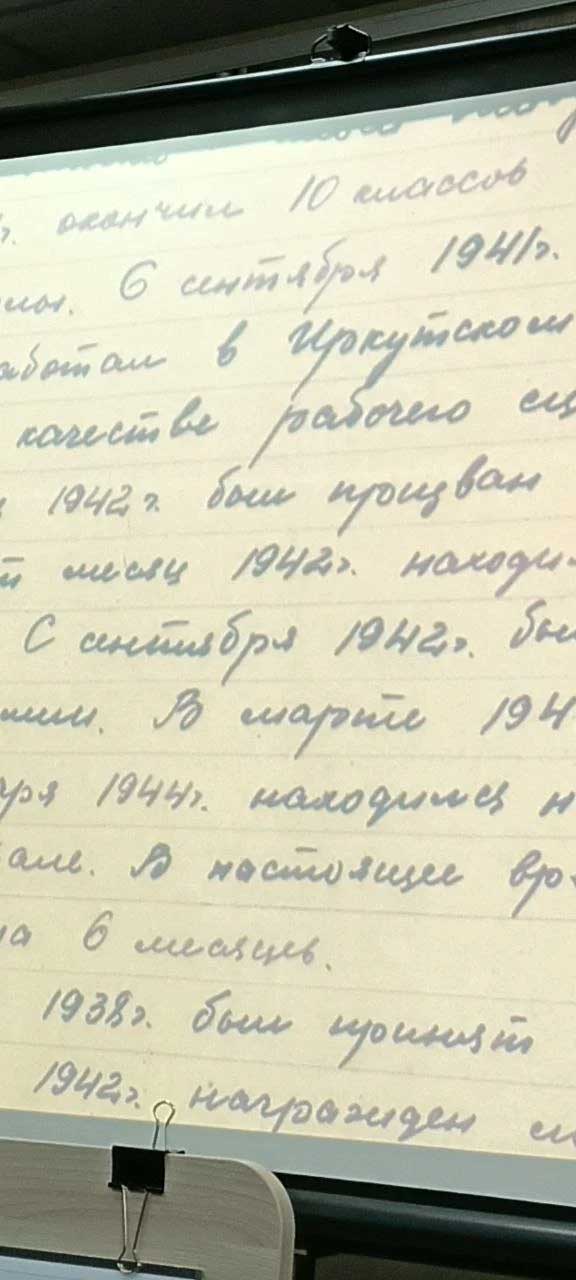 г. окончил 10 классов
лы. 6 сентября 1941г.
аботал в Иркутском
качестве рабочего сц
1942г. был призван
й месяц 1942г. находи
С сентября 1942г. бы
ии. В марте 194
аря 1944г. находился н
але. В настоящее вр
на 6 месяцев.
1938г. был принят
1942г. награжден